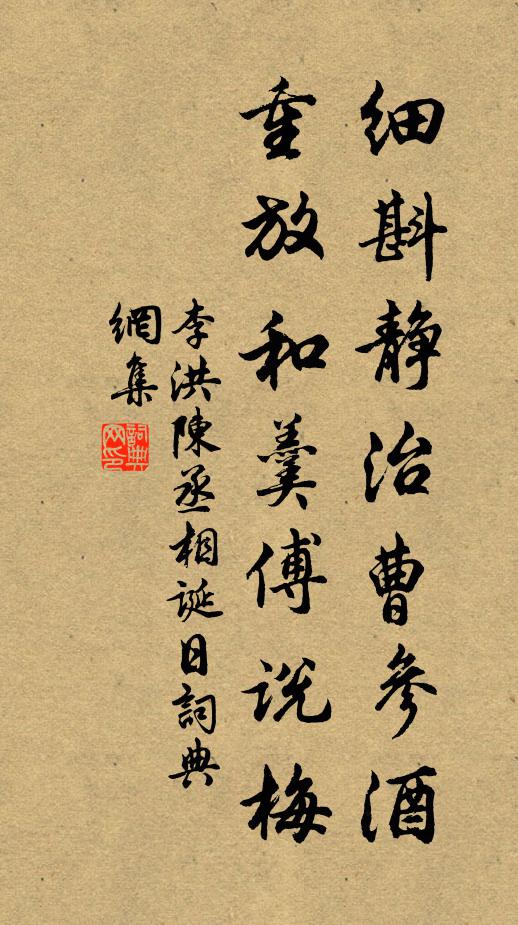 細斟靜治曹參酒
重放和羹傅說梅
李洪陳丞相誕日詞典
網集
詞典網印